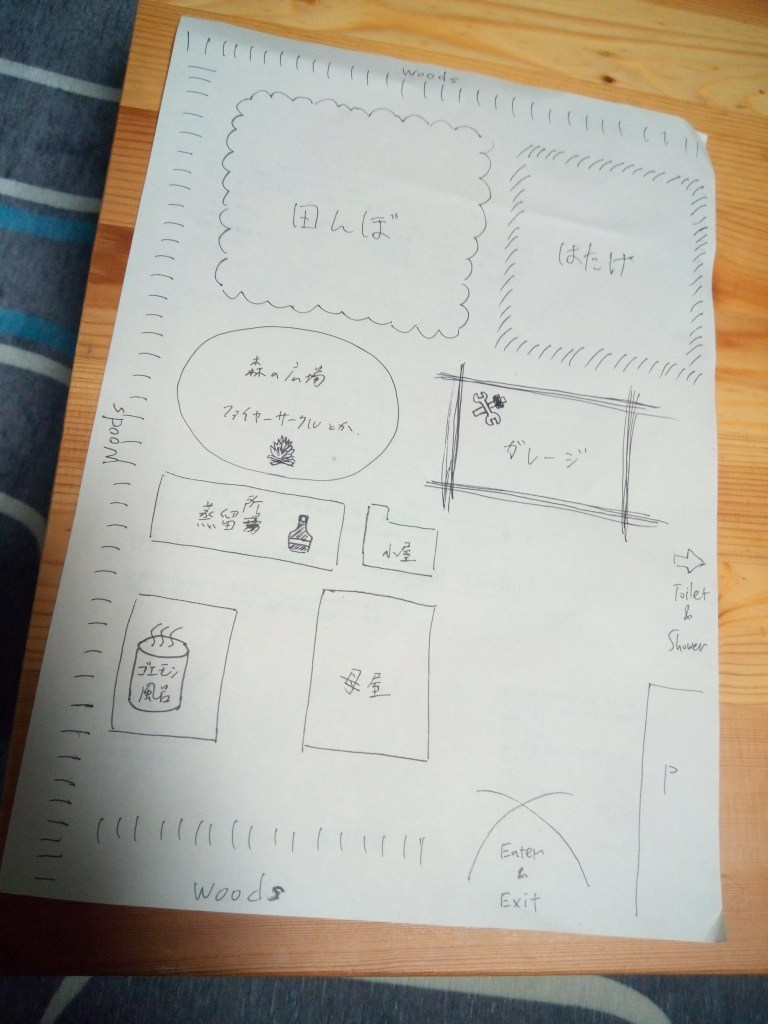 Woods
田んぼ
はたけ
森の広場
ファイヤーサークルとか
ガレージ
Woods
蒸留所
小屋
Toilet
&
Shower
ゴエモン
風呂
母屋
P
Enter
&
Exit
Woods